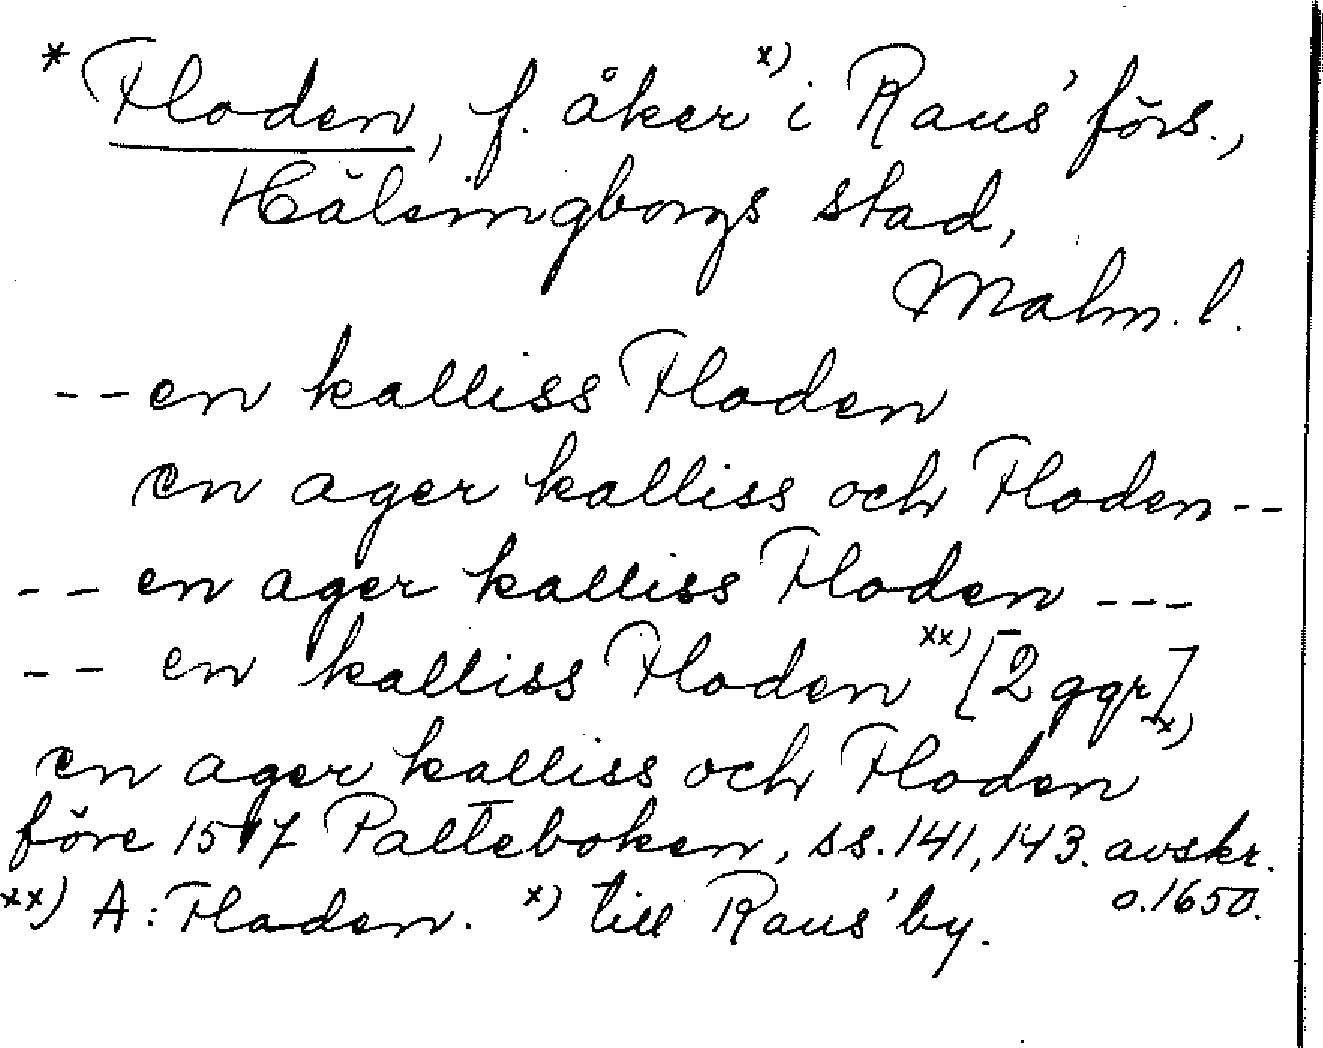 * Floden, f. åker x) i Raus' förs.,
Hälsingborgs stad,
Malm. l.
-- en kalliss Floden
en ager kalliss och Floden --
-- en ager kalliss Floden ---
-- en kalliss Floden xx) [2 ggr]
en ager kalliss och Floden x)
före 1517 Palteboken, ss. 141, 143. avskr.
o. 1650.
xx) A: Fladen. x) till Raus' by.